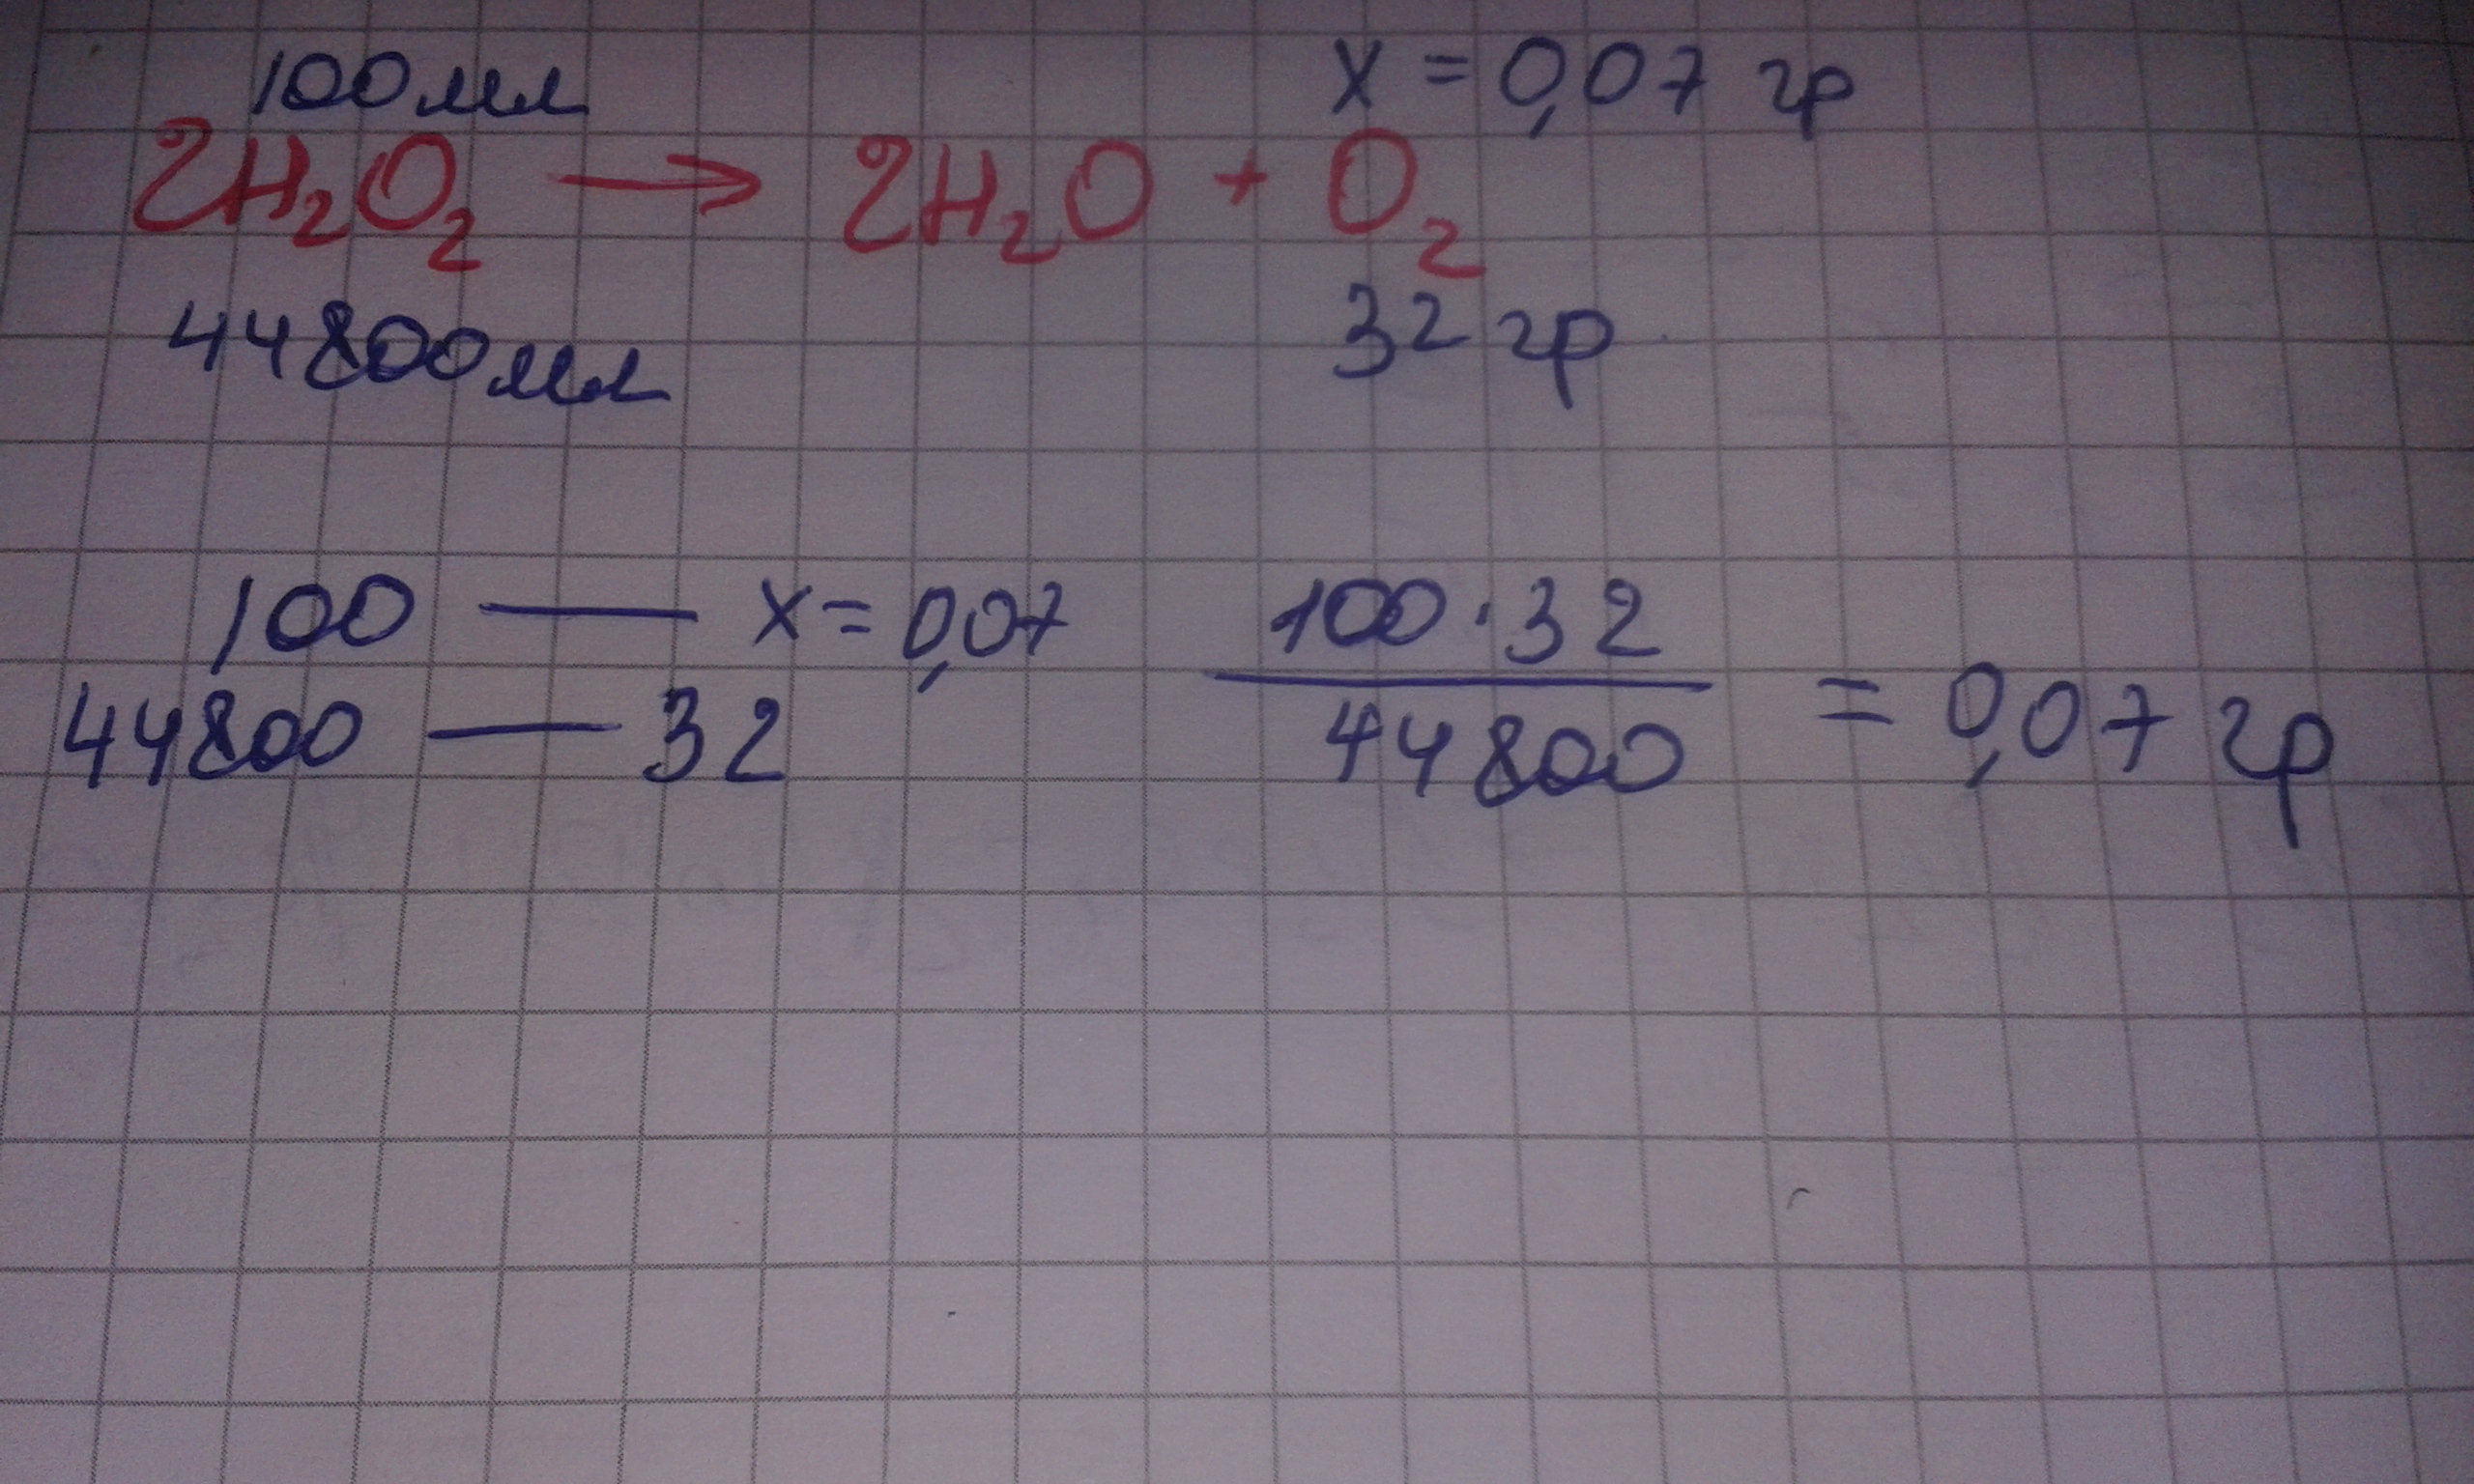 100мл x = 0,07 гр
2H₂O₂ → 2H₂O + O₂
44800мл 32 гр
100 — x = 0,07 100 · 32
44800 — 32 44800 = 0,07 гр